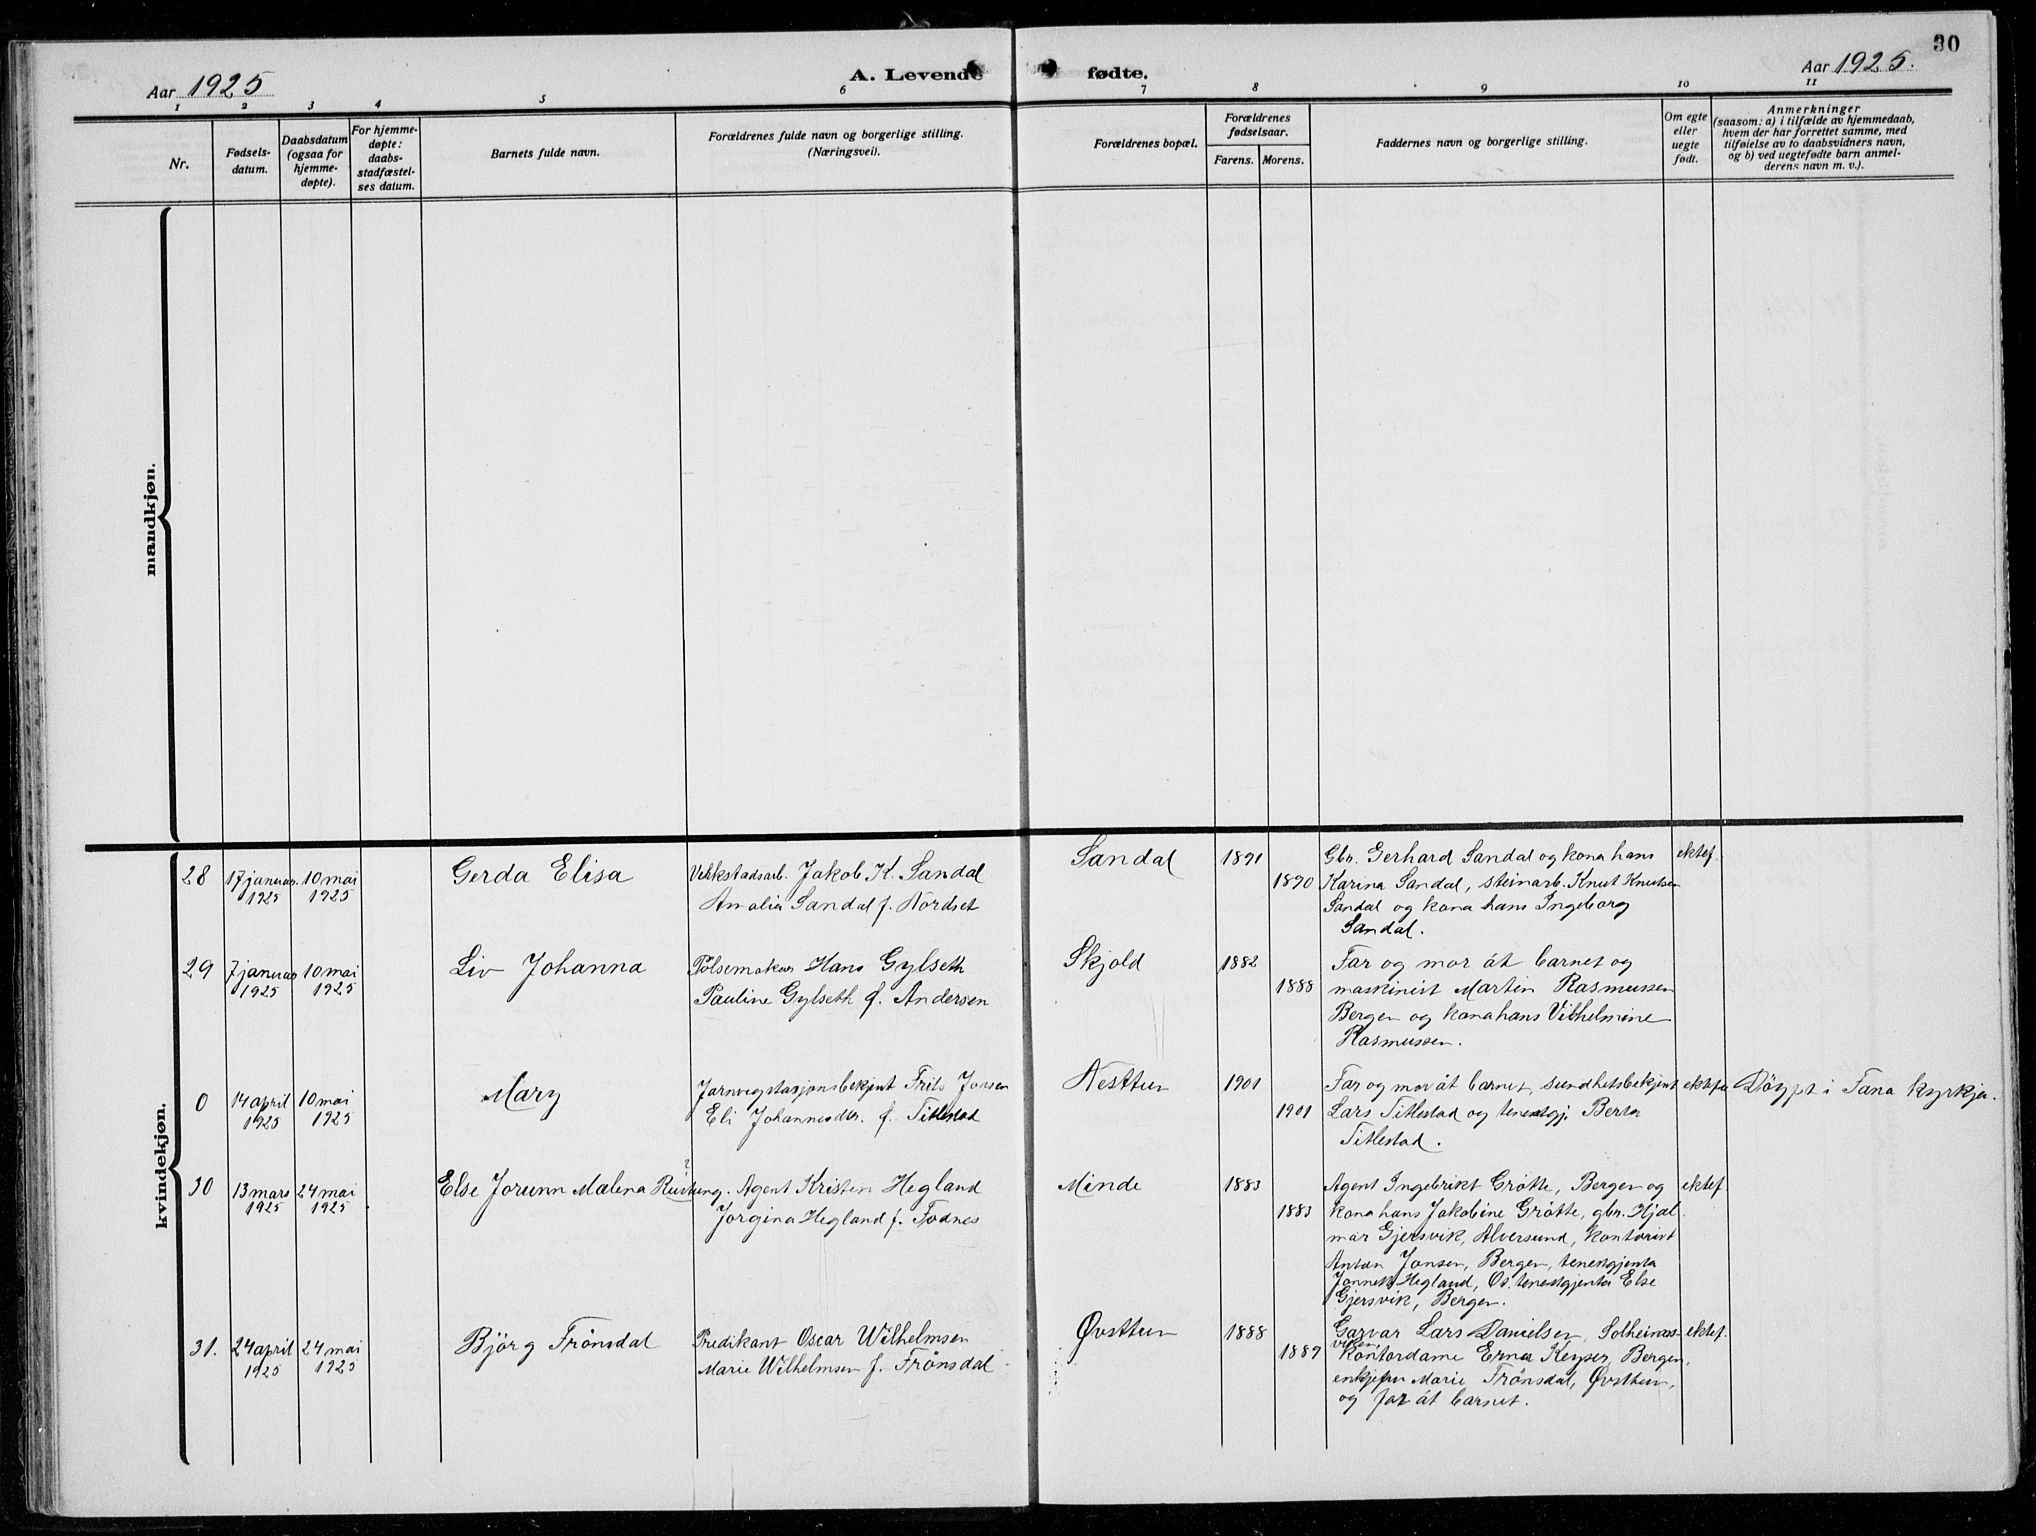 30
Aar 1925
A. Levende fødte.
Aar 1925.
1 2 3 4 5 6 7 8 9 10 11
Nr.
Fødsels-
datum.
Daabsdatum
(ogsaa for
hjemme-
døpte).
For hjemme-
døpte:
daabs-
stadfæstel-
ses datum.
Barnets fulde navn.
Forældrenes fulde navn og borgerlige stilling.
(Næringsvei).
Forældrenes bopæl.
Forældrenes
fødselsaar.
Farens. Morens.
Faddernes navn og borgerlige stilling.
Om egte
eller
uegte
født.
Anmerkninger
(saasom: a) i tilfælde av hjemmedaab,
hvem der har forrettet samme, med
tilføielse av to daabsvidners navn,
og b) ved uegtefødte barn anmel-
derens navn m. v.).
mandkjøn.
kvindekjøn.
28
17 januar
1925
10 mai
1925
Gerda Elisa
Verkstadsarb. Jakob K. Sandal
Amalia Sandal f. Nordset
Sandal
1891
1890
Gbr. Gerhard Sandal og kona hans
Karina Sandal, steinarb. Knut Knutsen
Sandal og kona hans Ingeborg
Sandal.
ektef.
29
7 januar
1925
10 mai
1925
Liv Johanna
Pölsemaker Hans Gylseth
Pauline Gylseth f. Andersen
Skjold
1882
1888
Far og mor åt barnet og
maskinist Martin Rasmussen
Bergen og kona hans Vilhelmine
Rasmussen.
0
14 april
1925
10 mai
1925
Mary
Jarnvegstasjonsbekjent Frits Jonsen
Eli Johannesdtr. f. Titlestad
Nesttun
1901
1901
Far og mor åt barnet, sundhetsbekjent
Lars Titlestad og tenestgj. Berta
Titlestad.
Döypt i Fana kyrkja.
30
13 mars
1925
24 mai
1925
Else Jorunn Malena
Agent Kristen Hegland
Jorgina Hegland f. Fodnes
Minde
1883
1883
Agent Ingebrikt Gròtte, Bergen og
kona hans Jakobine Gròtte, gbr. Hjal
mar Gjersvik, Alversund, kontorist
Anton Jonsen, Bergen, tenestgjenta
Hegland, Os, tenestgjenta Else
Gjersvik, Bergen.
ektef.
31.
24 april
1925
24 mai
1925
Björg Frönsdal
Predikant Oscar Wilhelmsen
Marie Wilhelmsen f. Frönsdal
Øvsttun
1888
1889
Garvar Lars Danielsen, Solheims-
viken,
kontordame Erna Keyser, Bergen,
enkjefru Marie Frönsdal, Øvsttun,
og far åt barnet.
ektef.